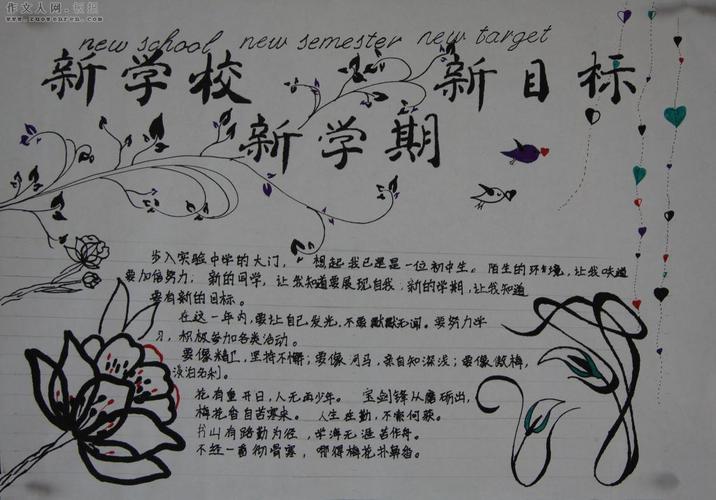 作文人网·板报
www.zuowenren.com
new school new semester new target
新学校 新目标
新学期
步入实验中学的大门， 想起我已经是一位初中生。陌生的环境，让我知道
要加倍努力；新的同学，让我知道要展现自我；新的学期，让我知道
要有新的目标。
在这一年内，要让自己发光，不要默默无闻。要努力学
习，积极参加各类活动。
要像精卫，坚持不懈；要像河马，亲自知深浅；要像傲梅，
淡泊名利。
花有重开日，人无再少年。 宝剑锋从磨砺出，
梅花香自苦寒来。 人生在勤，不索何获。
书山有路勤为径，学海无涯苦作舟。
不经一番彻骨寒，哪得梅花扑鼻香。